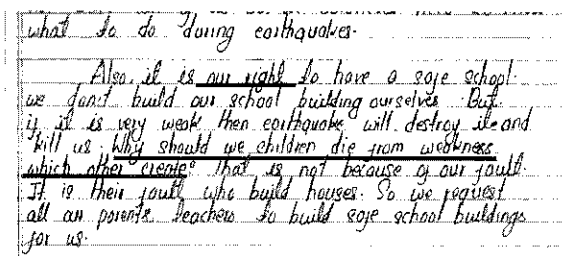 what to do during earthquakes.
Also, it is our right to have a safe school.
we don't build our school building ourselves. But
if it is very weak then earthquake will destroy it and
kill us. Why should we children die from weakness
which other create? That is not because of our fault.
It is their fault who build houses. So we request
all our parents, teachers to build safe school buildings
for us.